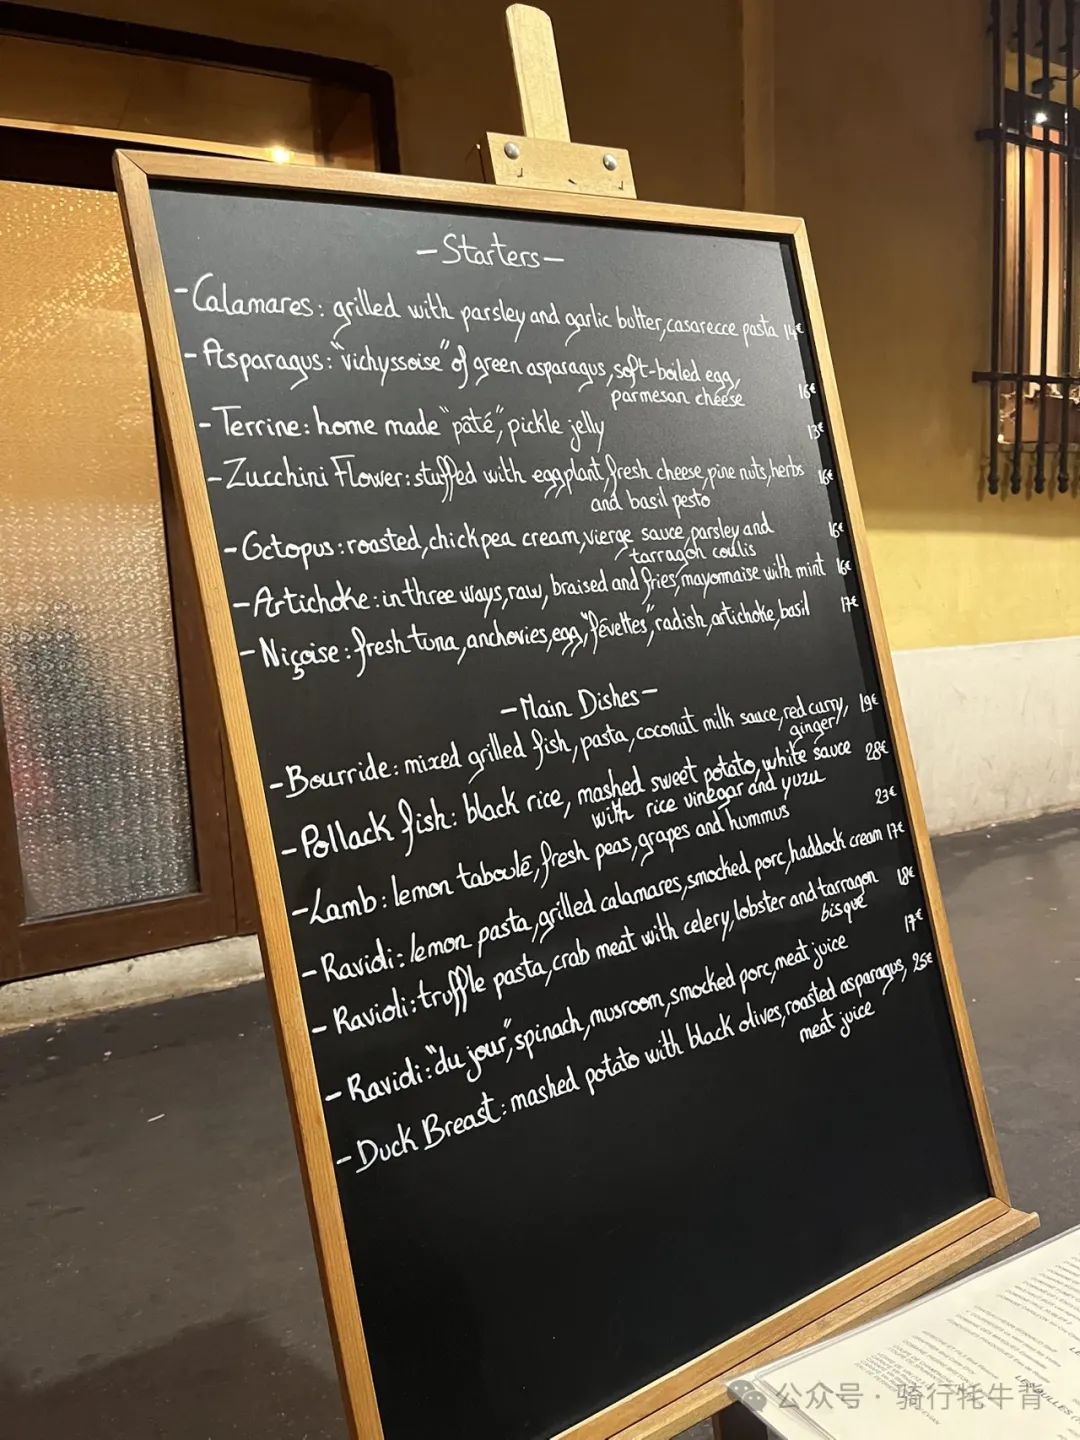 -Starters-
-Calamares: grilled with parsley and garlic butter, casarecce pasta 14€
-Asparagus: "vichyssoise" of green asparagus, soft-boiled egg,
parmesan cheese 16€
-Terrine: home made "pâté", pickle jelly 13€
-Zucchini Flower: stuffed with eggplant, fresh cheese, pine nuts, herbs 16€
and basil pesto
-Octopus: roasted, chickpea cream, vierge sauce, parsley and 16€
tarragon coulis
-Artichoke: in three ways, raw, braised and fries, mayonnaise with mint 16€
-Niçoise: fresh tuna, anchovies, egg, "févettes", radish, artichoke, basil 17€
-Main Dishes-
-Bourride: mixed grilled fish, pasta, coconut milk sauce, red curry, 19€
ginger
-Pollack fish: black rice, mashed sweet potato, white sauce 28€
with rice vinegar and yuzu
-Lamb: lemon taboulé, fresh peas, grapes and hummus 23€
-Ravioli: lemon pasta, grilled calamares, smocked porc, haddock cream 17€
-Ravioli: truffle pasta, crab meat with celery, lobster and tarragon 18€
bisque
-Ravioli: "du jour", spinach, musroom, smocked porc, meat juice 17€
-Duck Breast: mashed potato with black olives, roasted asparagus, 25€
meat juice
公众号 · 骑行牦牛背